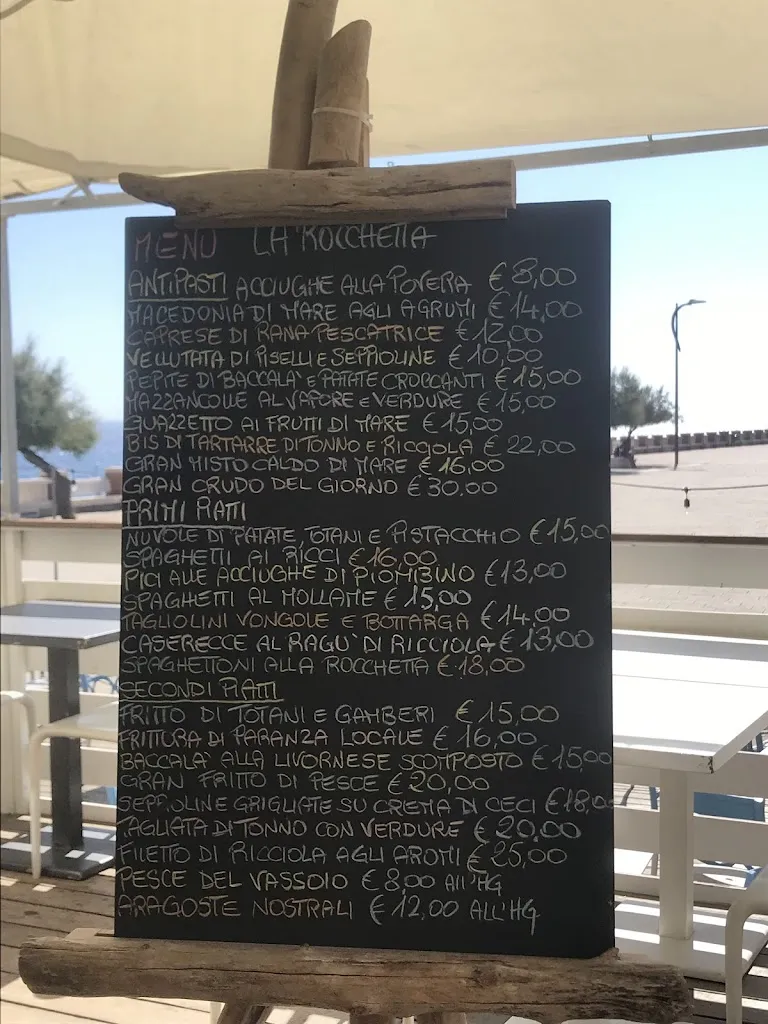 MENÙ LA ROCCHETTA
ANTIPASTI ACCIUGHE ALLA POVERA € 8,00
MACEDONIA DI MARE AGLI AGRUMI € 14,00
CAPRESE DI RANA PESCATRICE € 12,00
VELLUTATA DI PISELLI E SEPPIOLINE € 10,00
PEPITE DI BACCALA' E PATATE CROCCANTI € 15,00
MAZZANCOLLE AL VAPORE E VERDURE € 15,00
GUAZZETTO AI FRUTTI DI MARE € 15,00
BIS DI TARTARRE DI TONNO E RICCIOLA € 22,00
GRAN MISTO CALDO DI MARE € 16,00
GRAN CRUDO DEL GIORNO € 30.00
PRIMI PIATTI
NUVOLE DI PATATE, TOTANI E PISTACCHIO € 15,00
SPAGHETTI AI RICCI € 16,00
PICI ALLE ACCIUGHE DI PIOMBINO € 13,00
SPAGHETTI AL MOLLAME € 15,00
TAGLIOLINI VONGOLE E BOTTARGA € 14.00
CASERECCE AL RAGU' DI RICCIOLA € 13,00
SPAGHETTONI ALLA ROCCHETTA € 18,00
SECONDI PIATTI
FRITTO DI TOTANI E GAMBERI € 15,00
FRITTURA DI PARANZA LOCALE € 16,00
BACCALA' ALLA LIVORNESE SCOMPOSTO € 15,00
GRAN FRITTO DI PESCE € 20,00
SEPPIOLINE GRIGLIATE SU CREMA DI CECI € 18,00
TAGLIATA DI TONNO CON VERDURE € 20.00
FILETTO DI RICCIOLA AGLI AROMI € 25,00
PESCE DEL VASSOIO € 8,00 ALL'HG
ARAGOSTE NOSTRALI € 12,00 ALL'HG